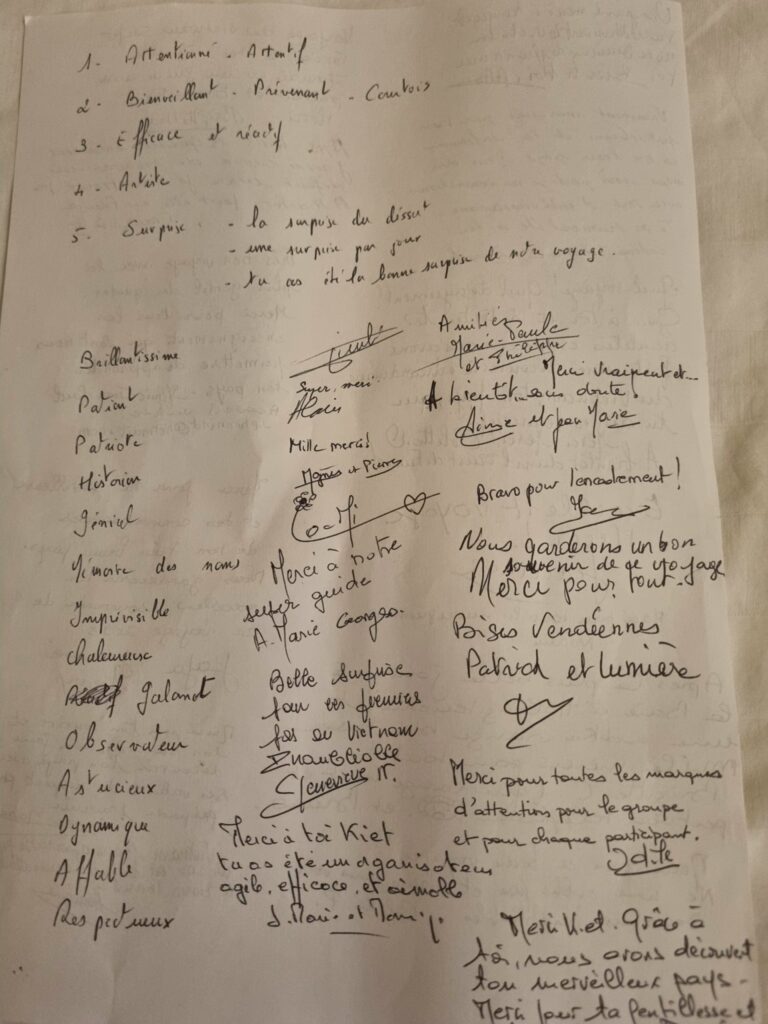 1. Attentionné - Attentif
2- Bienveillant - Prévenant - Courtois
3- Efficace et réactif
4- Artiste
5- Surprise - la surprise du dessert
- une surprise par jour
- tu as été la bonne surprise de notre voyage.
Brillantissime
Patient
Patriote
Historien
Génial
Mémoire des noms
Imprévisible
chaleureux
galant
Observateur
Astucieux
Dynamique
Affable
Respectueux
Super, merci
Alain
Mille mercis!
Agnès et Pierre
Merci à notre
super guide
A. Marie Georges.
Belle surprise
pour
fois au Vietnam
Geneviève
Merci à toi Kiet
tu as été un organisateur
agile, efficace, et aimable
J. Marie et
Amitiés
Marie-Paule
et Philippe
Merci vraiment et...
A bientôt... sans doute!
et Marie
Bravo pour l'encadrement!
Nous garderons un bon
souvenir de ce voyage
Merci pour tout.
Bises Vendéennes
Patrick et lumière
Merci pour toutes les marques
d'attention pour le groupe
et pour chaque participant.
Odile
Merci Kiet. Grâce à
toi, nous avons découvert
ton merveilleux pays -
Merci pour ta gentillesse et